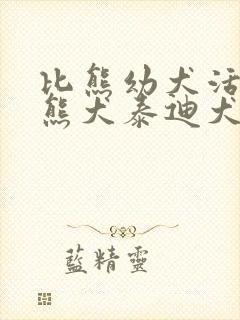 比熊幼犬活
熊犬泰迪犬
藍精靈